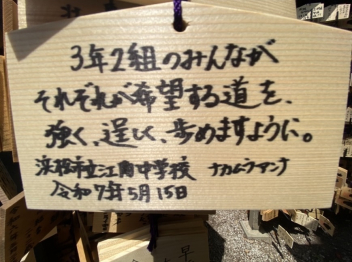 3年2組のみんなが
それぞれが希望する道を、
強く、逞しく、歩めますように。
浜松市立江南中学校 ナカムラアンナ
令和7年5月15日